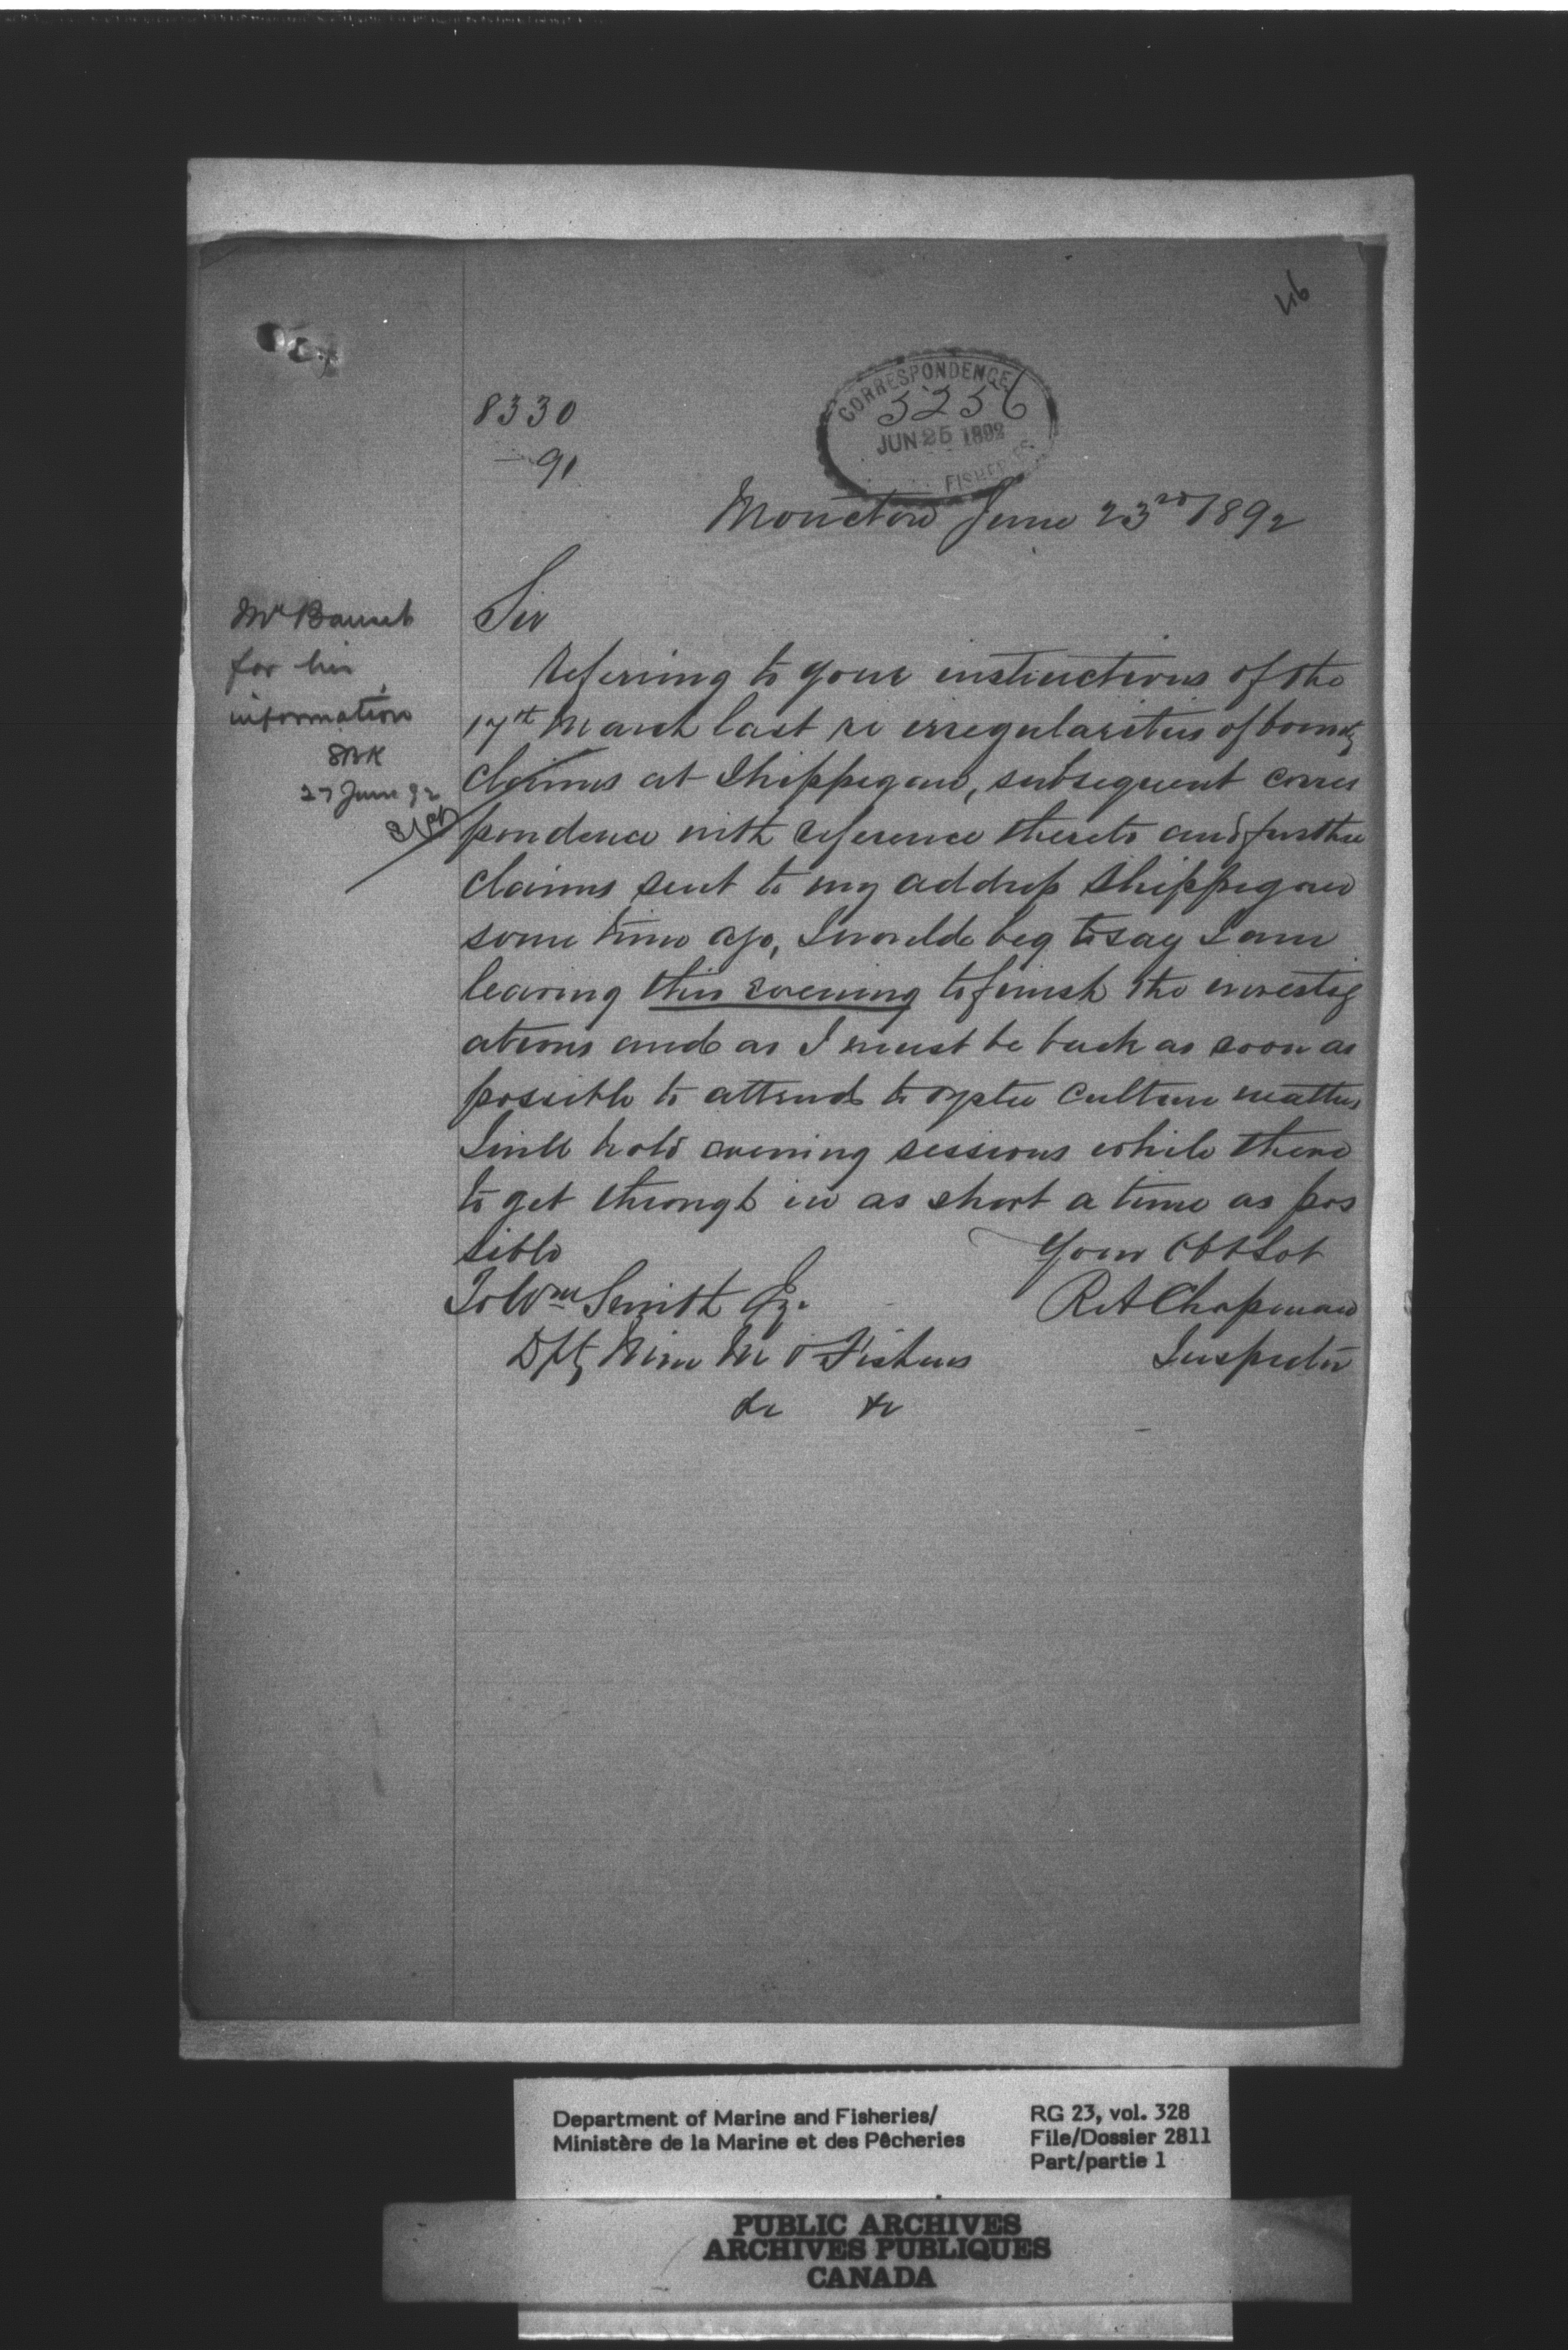 46
8330
91
CORRESPONDENCE
5256
JUN 25 1892
FISHERIES
Moncton June 23rd 1892
Mr Bauset
for his
information
27 June 92
Sir
Referring to your instructions of the
17th March last re irregularities of bounty
claims at Shippegan, subsequent corres
pondence with reference thereto and further
claims sent to my address Shippegan
some time ago, I would beg to say I am
leaving this evening to finish the investig
ations and as I must be back as soon as
possible to attend to oyster culture matters
I will hold evening sessions while there
to get through in as short a time as pos
sible
Your Obt Svt
To Wm Smith Esq.
R A Chapman
Dpty Min M & Fisheries
Inspector
&c &c
Department of Marine and Fisheries/
Ministère de la Marine et des Pêcheries
RG 23, vol. 328
File/Dossier 2811
Part/partie 1
PUBLIC ARCHIVES
ARCHIVES PUBLIQUES
CANADA